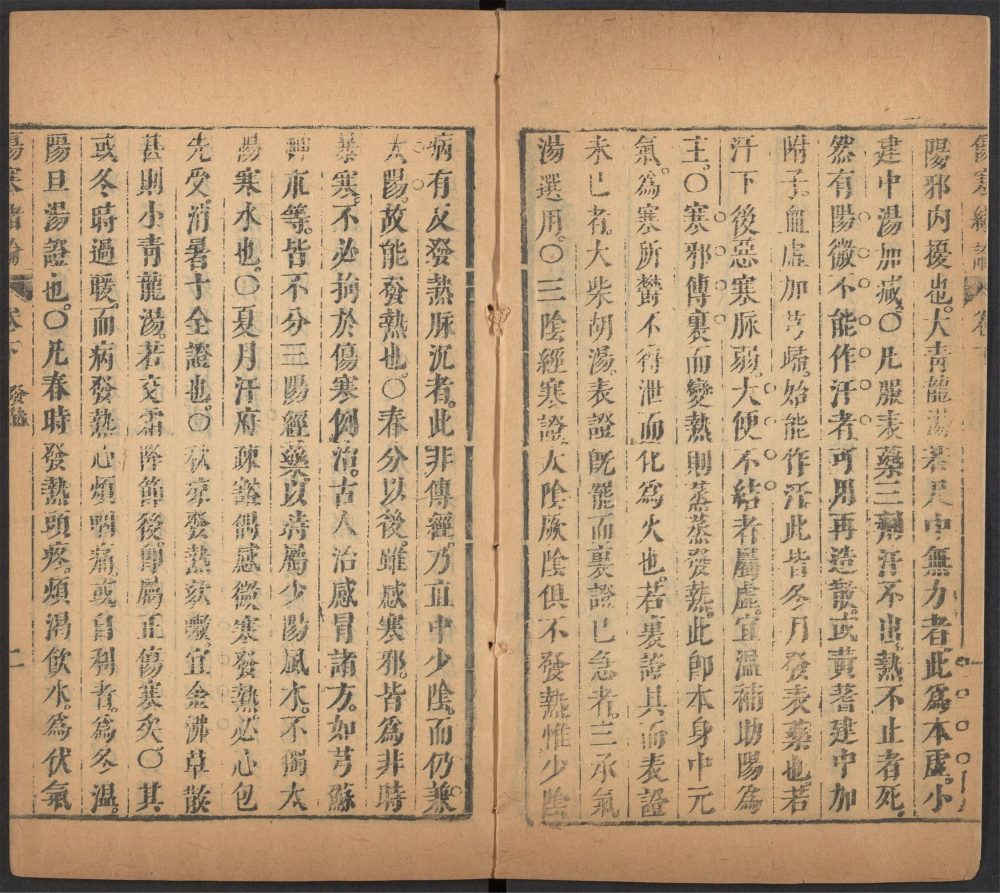 陽邪內擾也。大青龍湯若尺中無力者。此為本虛。小
建中湯加減。〇凡服表藥三劑。汗不出。熱不止者死。
然有陽微不能作汗者。可用再造散。或黃耆建中加
附子。血虛加芎歸。始能作汗。此皆冬月發表藥也。若
汗下後惡寒脉弱。大便不結者屬虛。宜溫補助陽為
主。〇寒邪傳裏而變熱。則蒸蒸發熱。此即本身中元
氣。為寒所鬱。不得泄而化為火也。若裏證具。而表證
未已者。大柴胡湯。表證既罷而裏證已急者。三承氣
湯選用。〇三陰經寒證。太陰厥陰俱不發熱。惟少陰
病有反發熱脉沉者。此非傳經。乃直中少陰。而仍兼
太陽。故能發熱也。〇春分以後。雖感寒邪。皆為非時
暴寒。不必拘於傷寒例治。古人治感冒諸方。如芎蘇
神朮等。皆不分三陽經藥。以時屬少陽風木。不獨太
陽寒水也。〇夏月汗府疎豁。偶感微寒發熱。必心包
先受。消暑十全證也。〇秋凉發熱欬嗽。宜金沸草散
甚則小青龍湯。若交霜降節後。即屬正傷寒矣。〇其
或冬時過暖。而病發熱心煩咽痛。或自利者。為冬溫。
陽旦湯證也。〇凡春時發熱頭疼。煩渴飲水。為伏氣
傷寒緒論 卷下 發熱 二